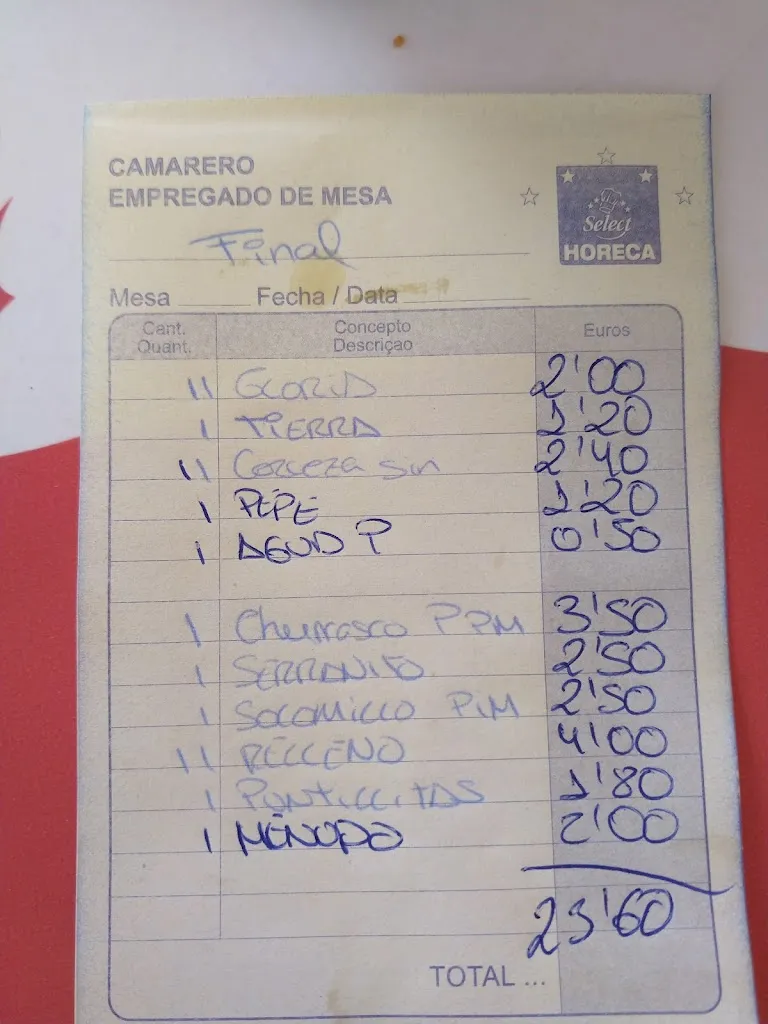 CAMARERO
EMPREGADO DE MESA
Select
HORECA
Final
Mesa Fecha / Data
Cant. Quant. Concepto Descriçao Euros
11 GLORIA 2'00
1 TIERRA 1'20
11 Cerveza sin 2'40
1 PEPE 1'20
1 AGUA P 0'50
1 Churrasco P PM 3'50
1 SERRANITO 2'50
1 SOLOMILLO PIM 2'50
11 RELLENO 4'00
1 PUNTILLITAS 1'80
1 MENUDO 2'00
23'60
TOTAL ...